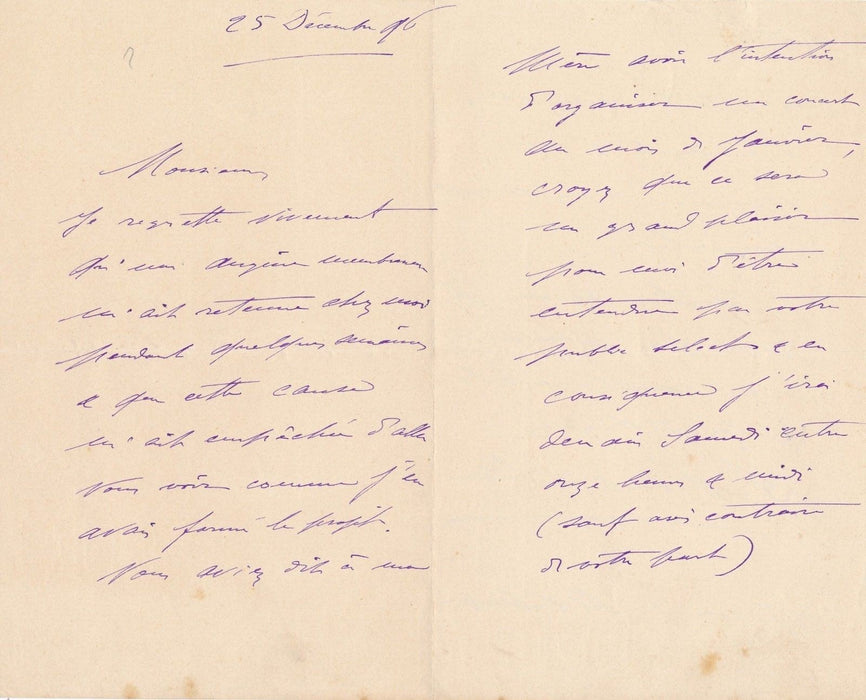 25 Décembre 96
Monsieur,
Je regrette vivement
qu'une angine membraneuse
m'ait retenue chez moi
pendant quelques semaines
& que cette cause
m'ait empêchée d'aller
vous voir comme j'en
avais formé le projet.
Vous aviez dit à ma
Mère avoir l'intention
d'organiser un concert
au mois de Janvier,
croyez que ce sera
un grand plaisir
pour moi d'être
entendue par votre
public select & en
conséquence j'irai
demain Samedi entre
onze heures & midi
(sauf avis contraire
de votre part)